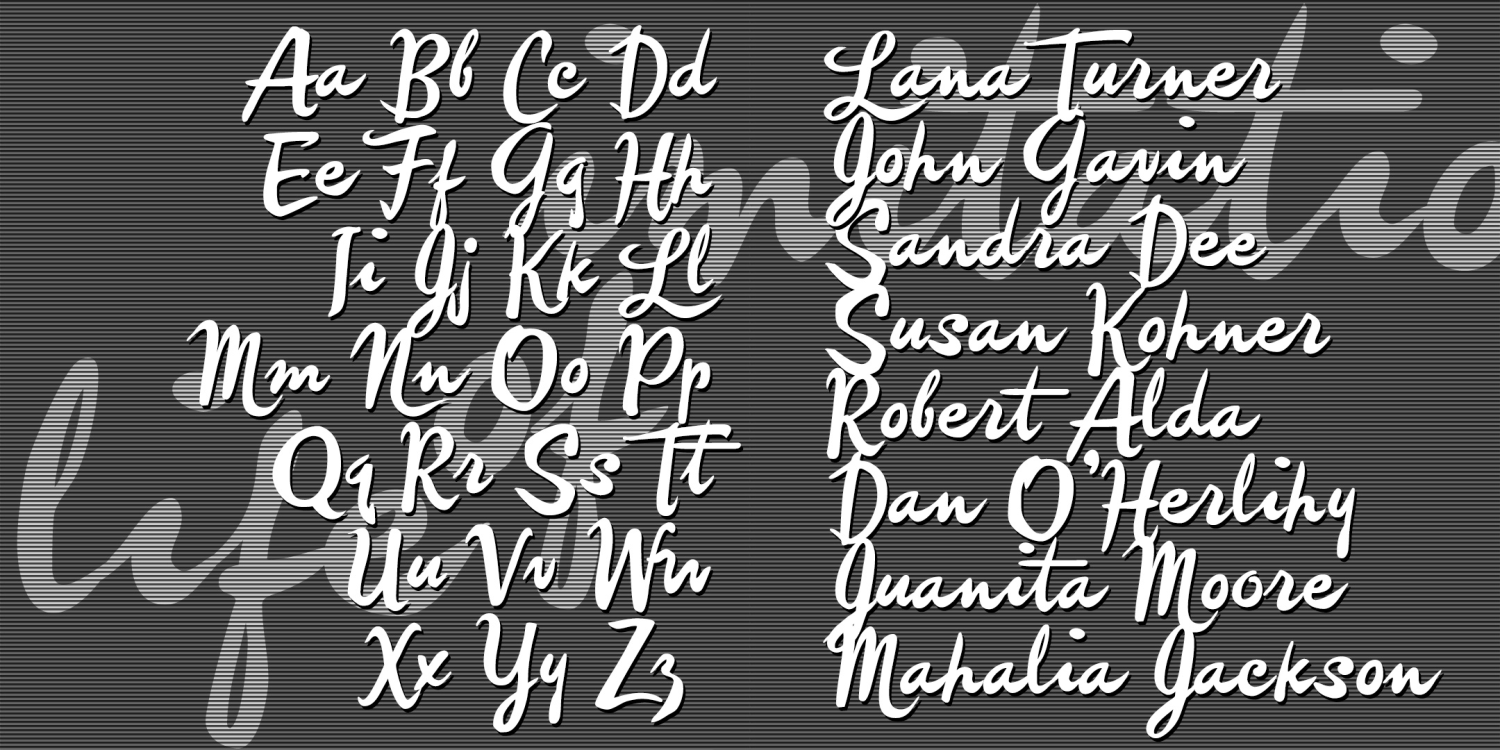 Aa Bb Cc Dd
Ee Ff Gg Hh
Ii Jj Kk Ll
Mm Nn Oo Pp
Qq Rr Ss Tt
Uu Vv Ww
Xx Yy Zz
Lana Turner
John Gavin
Sandra Dee
Susan Kohner
Robert Alda
Dan O'Herlihy
Juanita Moore
Mahalia Jackson
imitatio
of
life